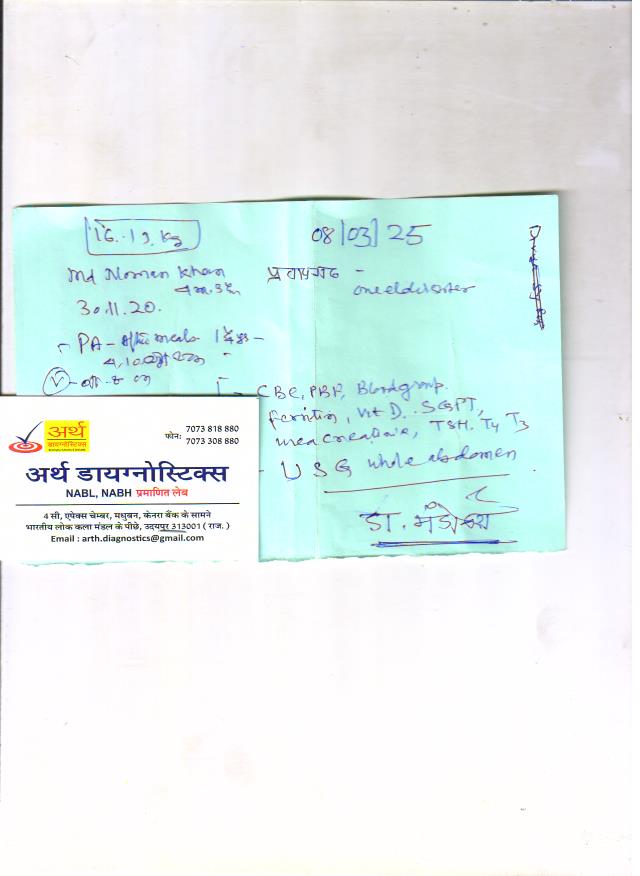 16.19. Kg
08/03/25
Md Noman Khan
one elder sister
30.11.20.
PA - After meals
CBC, PBF, Blood group.
ferritin, Vit D. SGPT,
urea creatinine, TSH. T4 T3
USG whole abdomen
डा.
अर्थ
डायग्नोस्टिक्स
फोन: 7073 818 880
7073 308 880
अर्थ डायग्नोस्टिक्स
NABL, NABH प्रमाणित लेब
4 सी, एपेक्स चेम्बर, मधुबन, केनरा बैंक के सामने
भारतीय लोक कला मंडल के पीछे, उदयपुर 313001 ( राज. )
Email : arth.diagnostics@gmail.com